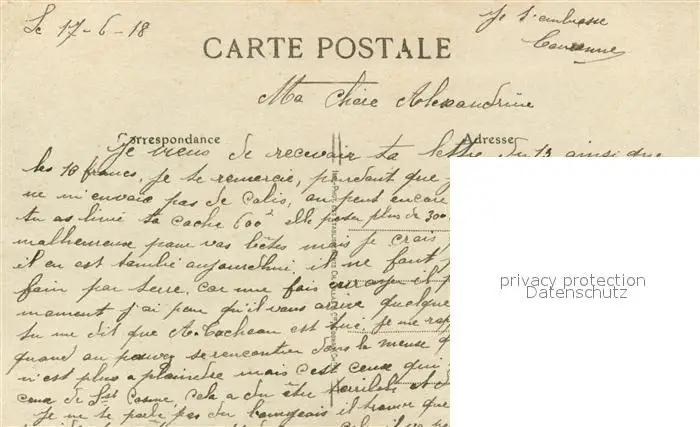 Le 17-6-18
Je t'embrasse
CARTE POSTALE
Ma Chère Alexandrine
Correspondance
Adresse
Je viens de recevoir ta lettre du 13 ainsi que
les 10 francs, je te remercie, pendant que
ne m'envoie pas de colis, on peut encore
tu as livré ta vache 600 elle peser plus de 300
malheureuse pour vos bêtes mais je crois
il en est tombé aujourdhui il ne faut
foin par terre, car une fois il
moment j'ai peur qu'il vous arrive quelque
tu me dit que A. Cacheau est tué, je me rap
quand on pouvez se rencontrer dans la meuse
n'est plus a plaindre mais c'est ceux qui
ceux de St Cosme, cela a du être terrible et
Je ne te parle pas du bourgeois il trouve que
privacy protection
Datenschutz